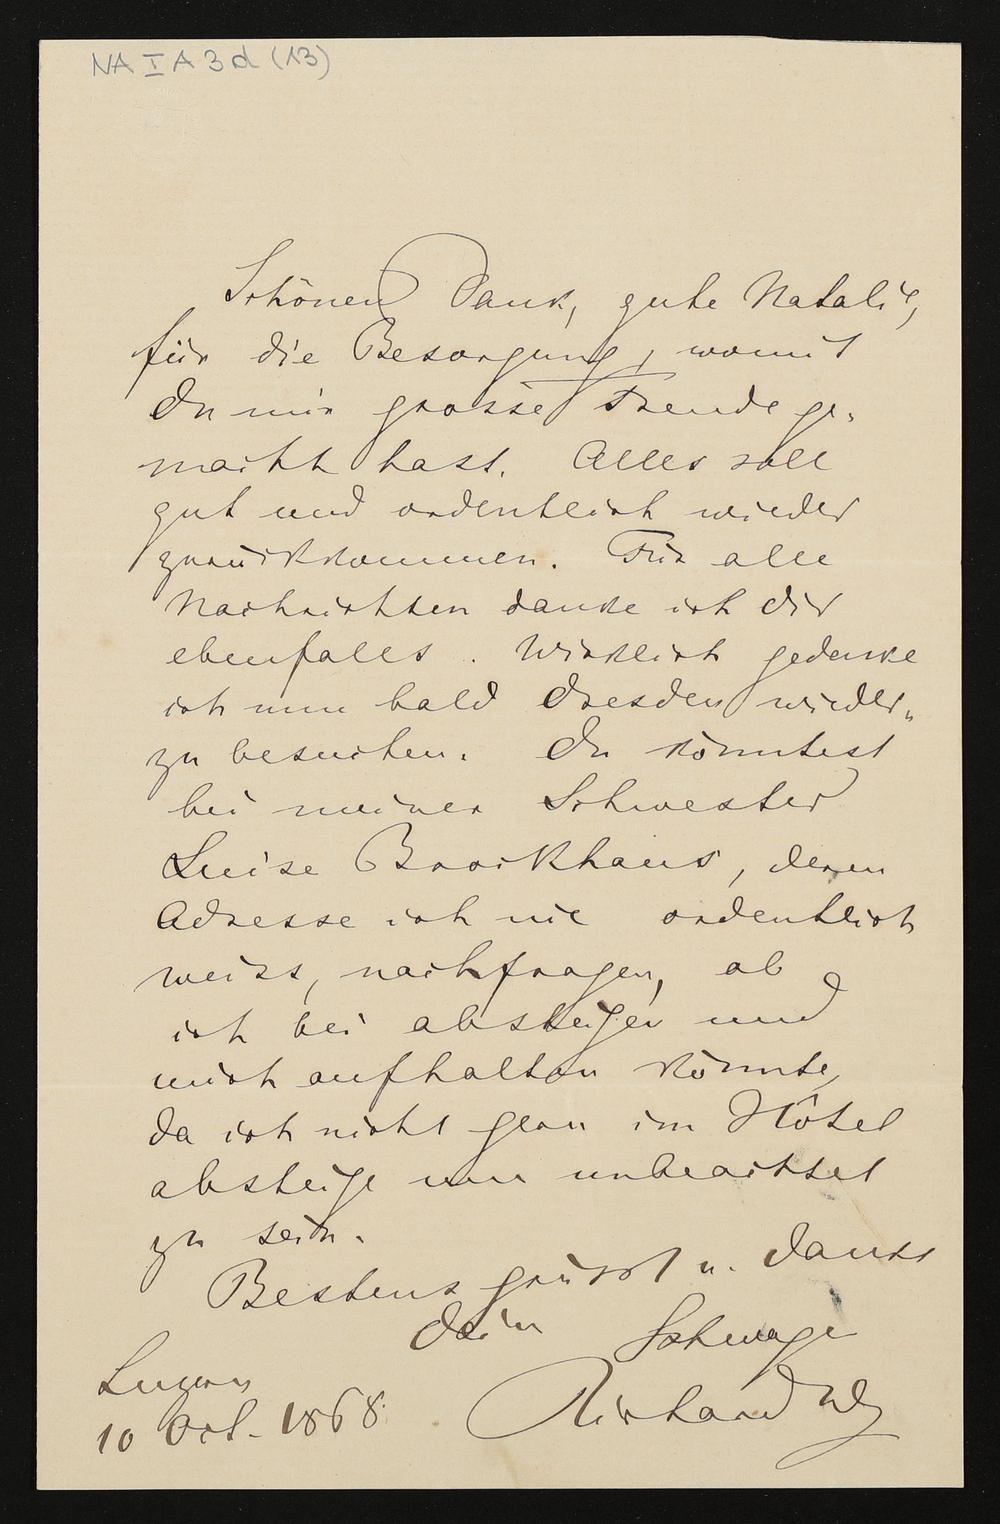 NA I A 3 d (13)
Schönen Dank, gute Natalie,
für die Besorgung, womit
Du mir grosse Freude ge-
macht hast. Alles soll
gut und ordentlich wieder
zurückkommen. Für alle
Nachrichten danke ich dir
ebenfalls. Wirklich gedenke
ich nun bald Dresden wieder
zu besuchen. Du könntest
bei meiner Schwester
Luise Brockhaus, deren
Adresse ich nie ordentlich
weiss, nachfragen, ob
ich bei absteigen und
mich aufhalten könnte,
da ich nicht gern im Hôtel
absteige um unbeachtet
zu sein.
Bestens grüsst u. dankt
Dein Schwager
Luzern
10 Oct. 1868. Richard W